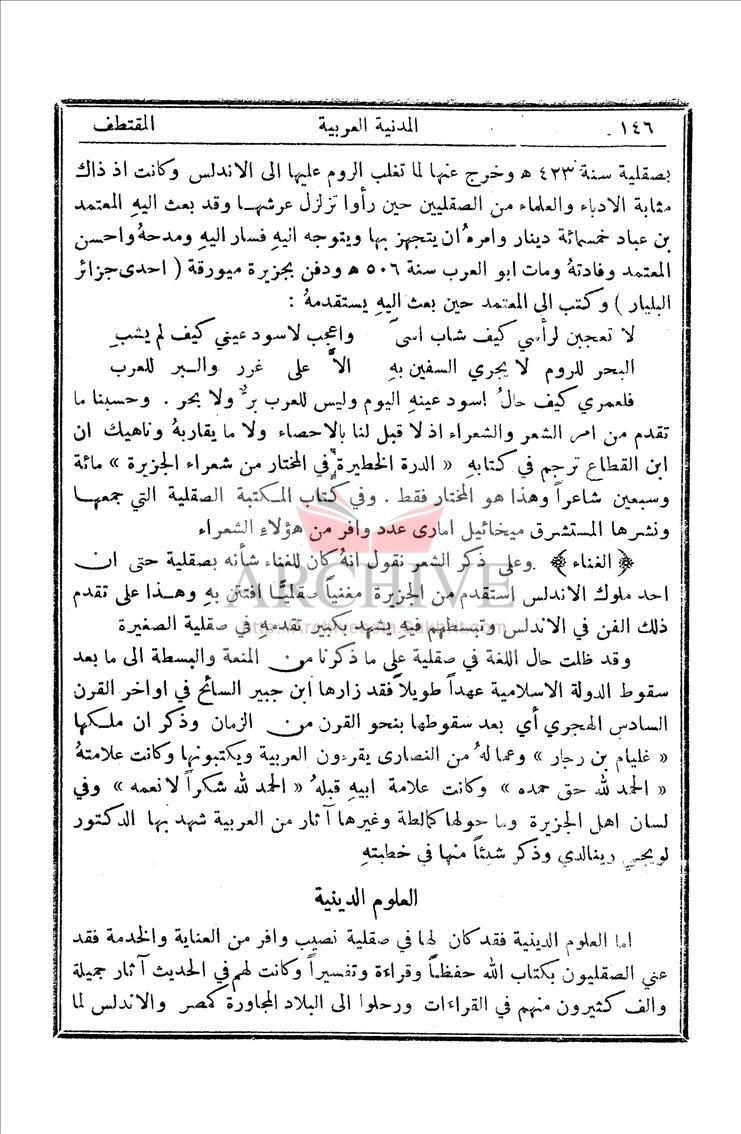 ١٤٦ المدنية العربية المقتطف
بصقلية سنة ٤٢٣ ه وخرج عنها لما تغلب الروم عليها الى الاندلس وكانت اذ ذاك
مثابة الادباء والعلماء من الصقليين حين رأوا تزلزل عرشهـا وقد بعث اليهِ المعتمد
بن عباد خمسمائة دينار وامرهُ ان يتجهز بها ويتوجه اليهِ فسار اليهِ ومدحهُ واحسن
المعتمد وفادتهُ ومات ابو العرب سنة ٥٠٦ ه ودفن بجزيرة ميورقة ( احدى جزائر
البليار ) وكتب الى المعتمد حين بعث اليهِ يستقدمهُ :
لا تعجبن لرأسي كيف شاب اسىً واعجب لاسود عيني كيف لم يشبِ
البحر للروم لا يجري السفين بهِ الاَّ على غرر والـبر للعرب
فلعمري كيف حالُ اسود عينهِ اليوم وليس للعرب برٌّ ولا بحر . وحسبنا ما
تقدم من امر الشعر والشعراء اذ لا قبل لنا بالاحصاء ولا ما يقاربهُ وناهيك ان
ابن القطاع ترجم في كتابهِ « الدرة الخطيرة في المختار من شعراء الجزيرة » مائة
وسبعين شاعراً وهذا هو المختار فقط . وفي كتاب المـكتبة الصقلية التي جمعهـا
ونشرها المستشرق ميخائيل امارى عدد وافر من هؤلاء الشعراء
﴿ الغناء ﴾ وعلى ذكر الشعر نقول انهُ كان للغناء شأنه بصقلية حتى ان
ARCHIVE
احد ملوك الاندلس استقدم من الجزيرة مغنياً صقليًّا افتتن بهِ وهـذا على تقدم
ذلك الفن في الاندلس وتبسطهم فيه يشهد بكبير تقدمهِ في صقلية الصغيرة
وقد ظلت حال اللغة في صقلية على ما ذكرنا من المنعة والبسطة الى ما بعد
سقوط الدولة الاسلامية عهداً طويلاً فقد زارها ابن جبير السائح في اواخر القرن
السادس الهجري أي بعد سقوطها بنحو القرن من الزمان وذكر ان ملـكها
« غليام بن رجار » وعماله ُ من النصارى يقرءون العربية ويكتبونها وكانت علامتهُ
« الحمد لله حق حمده » وكانت علامة ابيهِ قبلهُ « الحمد لله شكراً لانعمه » وفي
لسان اهل الجزيرة وما حولها كمالطة وغيرها آثار من العربية شهد بها الدكتور
لويجي رينالدي وذكر شيئاً منها في خطبتهِ
العلوم الدينية
اما العلوم الدينية فقد كان لها في صقلية نصيب وافر من العناية والخدمة فقد
عني الصقليون بكتاب الله حفظاً وقراءة وتفسيراً وكانت لهم في الحديث آثار جميلة
والف كثيرون منهم في القراءات ورحلوا الى البلاد المجاورة كمصر والاندلس لما